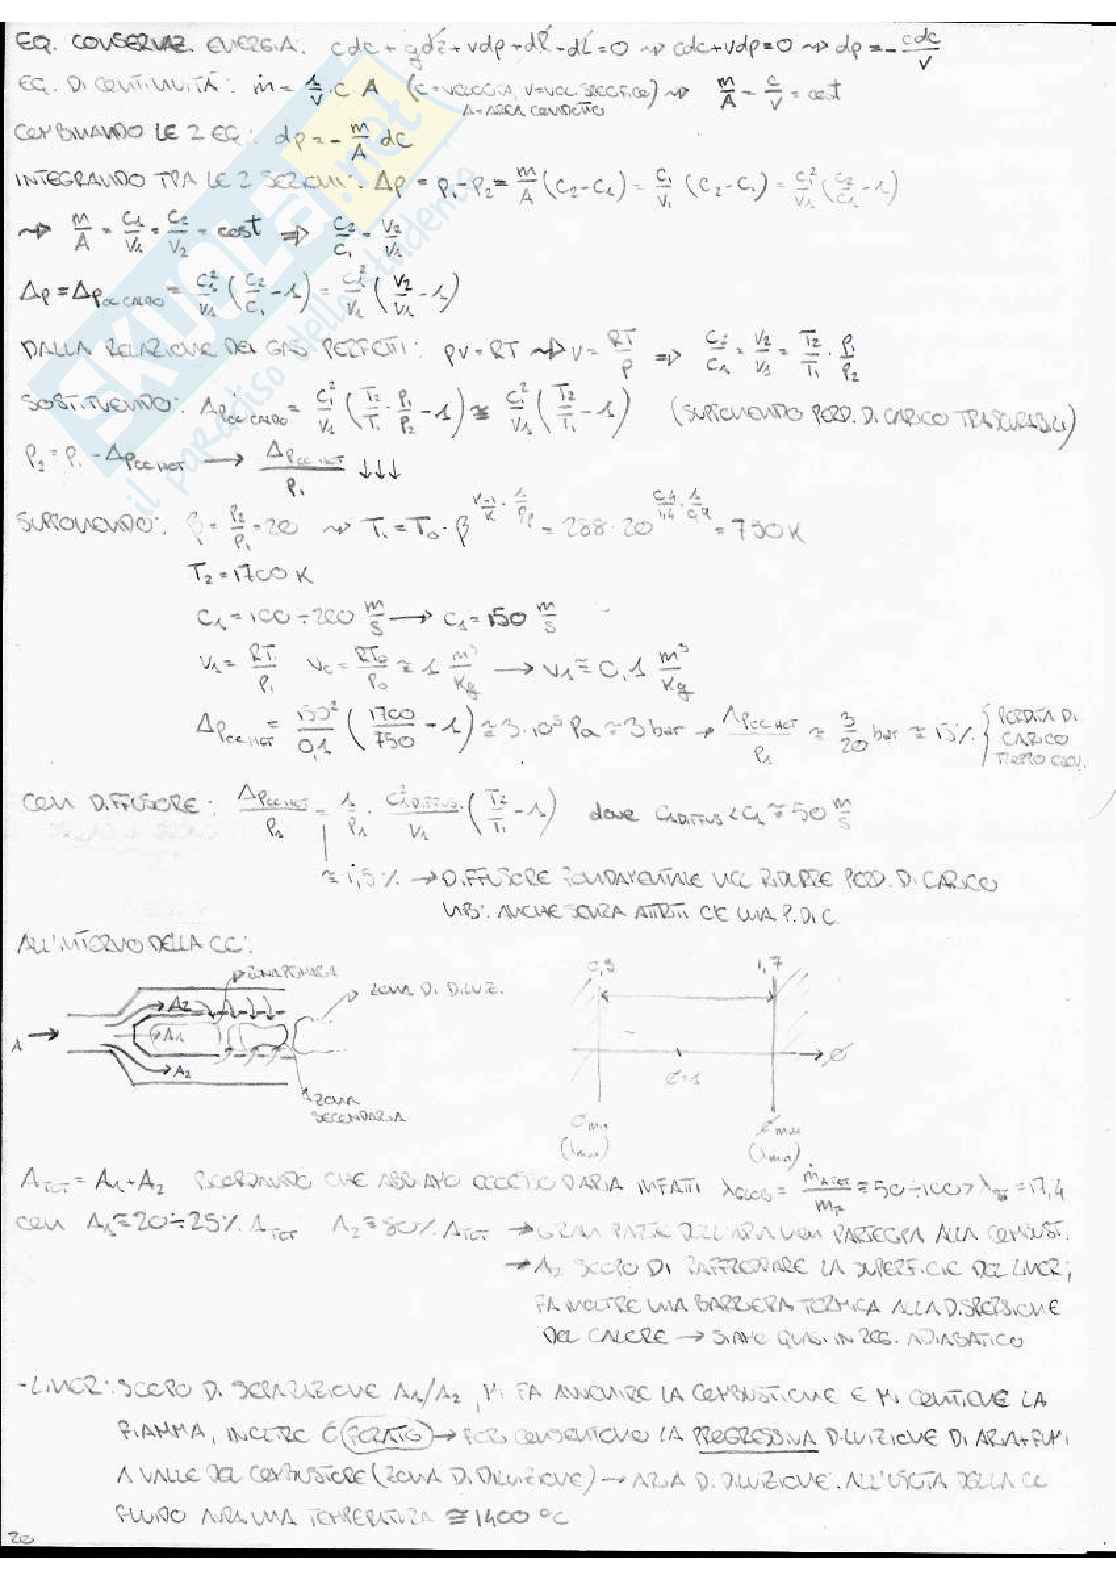 EQ. CONSERVAZ. ENERGIA: cdc + gdz + vdp + dR - dL = 0 ⇝ cdc + vdp = 0 ⇝ dp = - cdc/v
EQ. DI CONTINUITÀ: ṁ = 1/v · C A (C = VELOCITÀ, V = VOL. SPECIFICO) ⇝ ṁ/A = C/V = cost
A = AREA CONDOTTO
COMBINANDO LE 2 EQ: dp = - ṁ/A dC
INTEGRANDO TRA LE 2 SEZIONI: Δp = p₁ - p₂ = ṁ/A (C₂ - C₁) = C₁/V₁ (C₂ - C₁) = C₁²/V₁ (C₂/C₁ - 1)
⇝ ṁ/A = C₁/V₁ = C₂/V₂ = cost ⇒ C₂/C₁ = V₂/V₁
Δp = Δp CC CALDO = C₁²/V₁ (C₂/C₁ - 1) = C₁²/V₁ (V₂/V₁ - 1)
DALLA RELAZIONE DEI GAS PERFETTI: pv = RT ⇝ v = RT/p ⇒ C₂/C₁ = V₂/V₁ = T₂/T₁ · p₁/p₂
SOSTITUENDO: Δp CC CALDO = C₁²/V₁ (T₂/T₁ · p₁/p₂ - 1) ≅ C₁²/V₁ (T₂/T₁ - 1) (SUPPONENDO PERD. DI CARICO TRASCURABILI)
p₂ = p₁ - Δp CC HOT → Δp CC HOT / p₁ ↓↓↓
SUPPONENDO: β = p₂/p₁ = 20 ⇝ T₁ = T₀ · β^(K-1/K · 1/ηp) = 288 · 20^(0,4/1,4 · 1/0,9) = 750 K
T₂ = 1700 K
C₁ = 100 ÷ 200 m/s → C₁ = 150 m/s
V₁ = RT₁/p₁ V₀ = RT₀/p₀ ≅ 1 m³/Kg → V₁ ≅ 0,1 m³/Kg
Δp CC HOT = 150²/0,1 (1700/750 - 1) ≅ 3·10⁵ Pa ≅ 3 bar → Δp CC HOT / p₁ ≅ 3/20 bar ≅ 15% { PERDITA DI
CARICO
TROPPO ELEV.
CON DIFFUSORE: Δp CC HOT / p₁ = 1/p₁ · C₁² DIFFUS. / V₁ · (T₂/T₁ - 1) dove C₁ DIFFUS < C₁ ≅ 50 m/s
≅ 1,5% → DIFFUSORE FONDAMENTALE NEL RIDURRE PERD. DI CARICO
NB: ANCHE SENZA ATTRITI C'È UNA P. DI C.
ALL'INTERNO DELLA CC:
ZONA PRIMARIA
ZONA DI DILUIZ.
0,5 1,7
A → A₂
A₁
A₂
Ø
Ø=1
ZONA
SECONDARIA
Ømin
(λmax)
Ømax
(λmin)
A TOT = A₁ + A₂ RICORDANDO CHE ABBIAMO ECCESSO D'ARIA INFATTI λ GLOB = ṁ A TOT / ṁ F ≅ 50 ÷ 100 > λ st = 17,4
con A₁ ≅ 20 ÷ 25% A TOT A₂ ≅ 80% A TOT → GRAN PARTE DELL'ARIA NON PARTECIPA ALLA COMBUST.
→ A₂ SCOPO DI RAFFREDDARE LA SUPERFICIE DEL LINER;
FA INOLTRE UNA BARRIERA TERMICA ALLA DISPERSIONE
DEL CALORE → SIAMO QUASI IN REG. ADIABATICO
- LINER: SCOPO DI SEPARAZIONE A₁/A₂, MI FA AVVENIRE LA COMBUSTIONE E MI CONTIENE LA
FIAMMA, INOLTRE È FORATO → FORI CONSENTONO LA PROGRESSIVA DILUIZIONE DI ARIA+FUMI
A VALLE DEL COMBUSTORE (ZONA DI DILUIZIONE) → ARIA DI DILUIZIONE. ALL'USCITA DELLA CC
FLUIDO AVRÀ UNA TEMPERATURA ≅ 1400 °C
20
SKUOLA.net
il paradiso dello studente